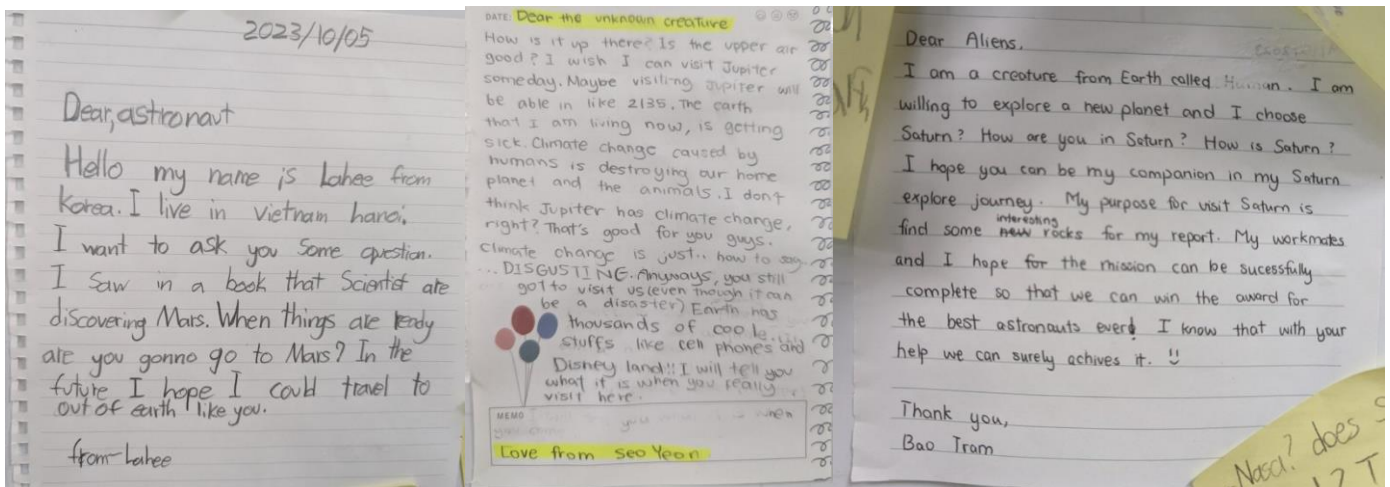 2023/10/05
Dear, astronaut
Hello my name is Lahee from
Korea. I live in Vietnam hanoi.
I want to ask you some question.
I saw in a book that Scientist are
discovering Mars. When things are ready
are you gonno go to Mars? In the
future I hope I could travel to
out of earth like you.
from-Lahee
DATE: Dear the unknown creature
How is it up there? Is the upper air
good? I wish I can visit Jupiter
someday. Maybe visiting Jupiter will
be able in like 2135. The earth
that I am living now, is getting
sick. Climate change caused by
humans is destroying our home
planet and the animals. I don't
think Jupiter has climate change,
right? That's good for you guys.
Climate change is just.. how to say
... DISGUSTING. Anyways, you still
got to visit us (even though it can
be a disaster) Earth has
thousands of
stuffs like cell phones and
Disney land!! I will tell you
what it is when you really
visit here.
MEMO when
Love from Seo Yeon
Dear Aliens,
I am a creature from Earth called Human. I am
willing to explore a new planet and I choose
Saturn? How are you in Saturn? How is Saturn?
I hope you can be my companion in my Saturn
explore journey. My purpose for visit Saturn is
interesting
find some new rocks for my report. My workmates
and I hope for the mission can be sucessfully
complete so that we can win the award for
the best astronauts ever! I know that with your
help we can surely achives it.
Thank you,
Bao Tram
Nasa? does